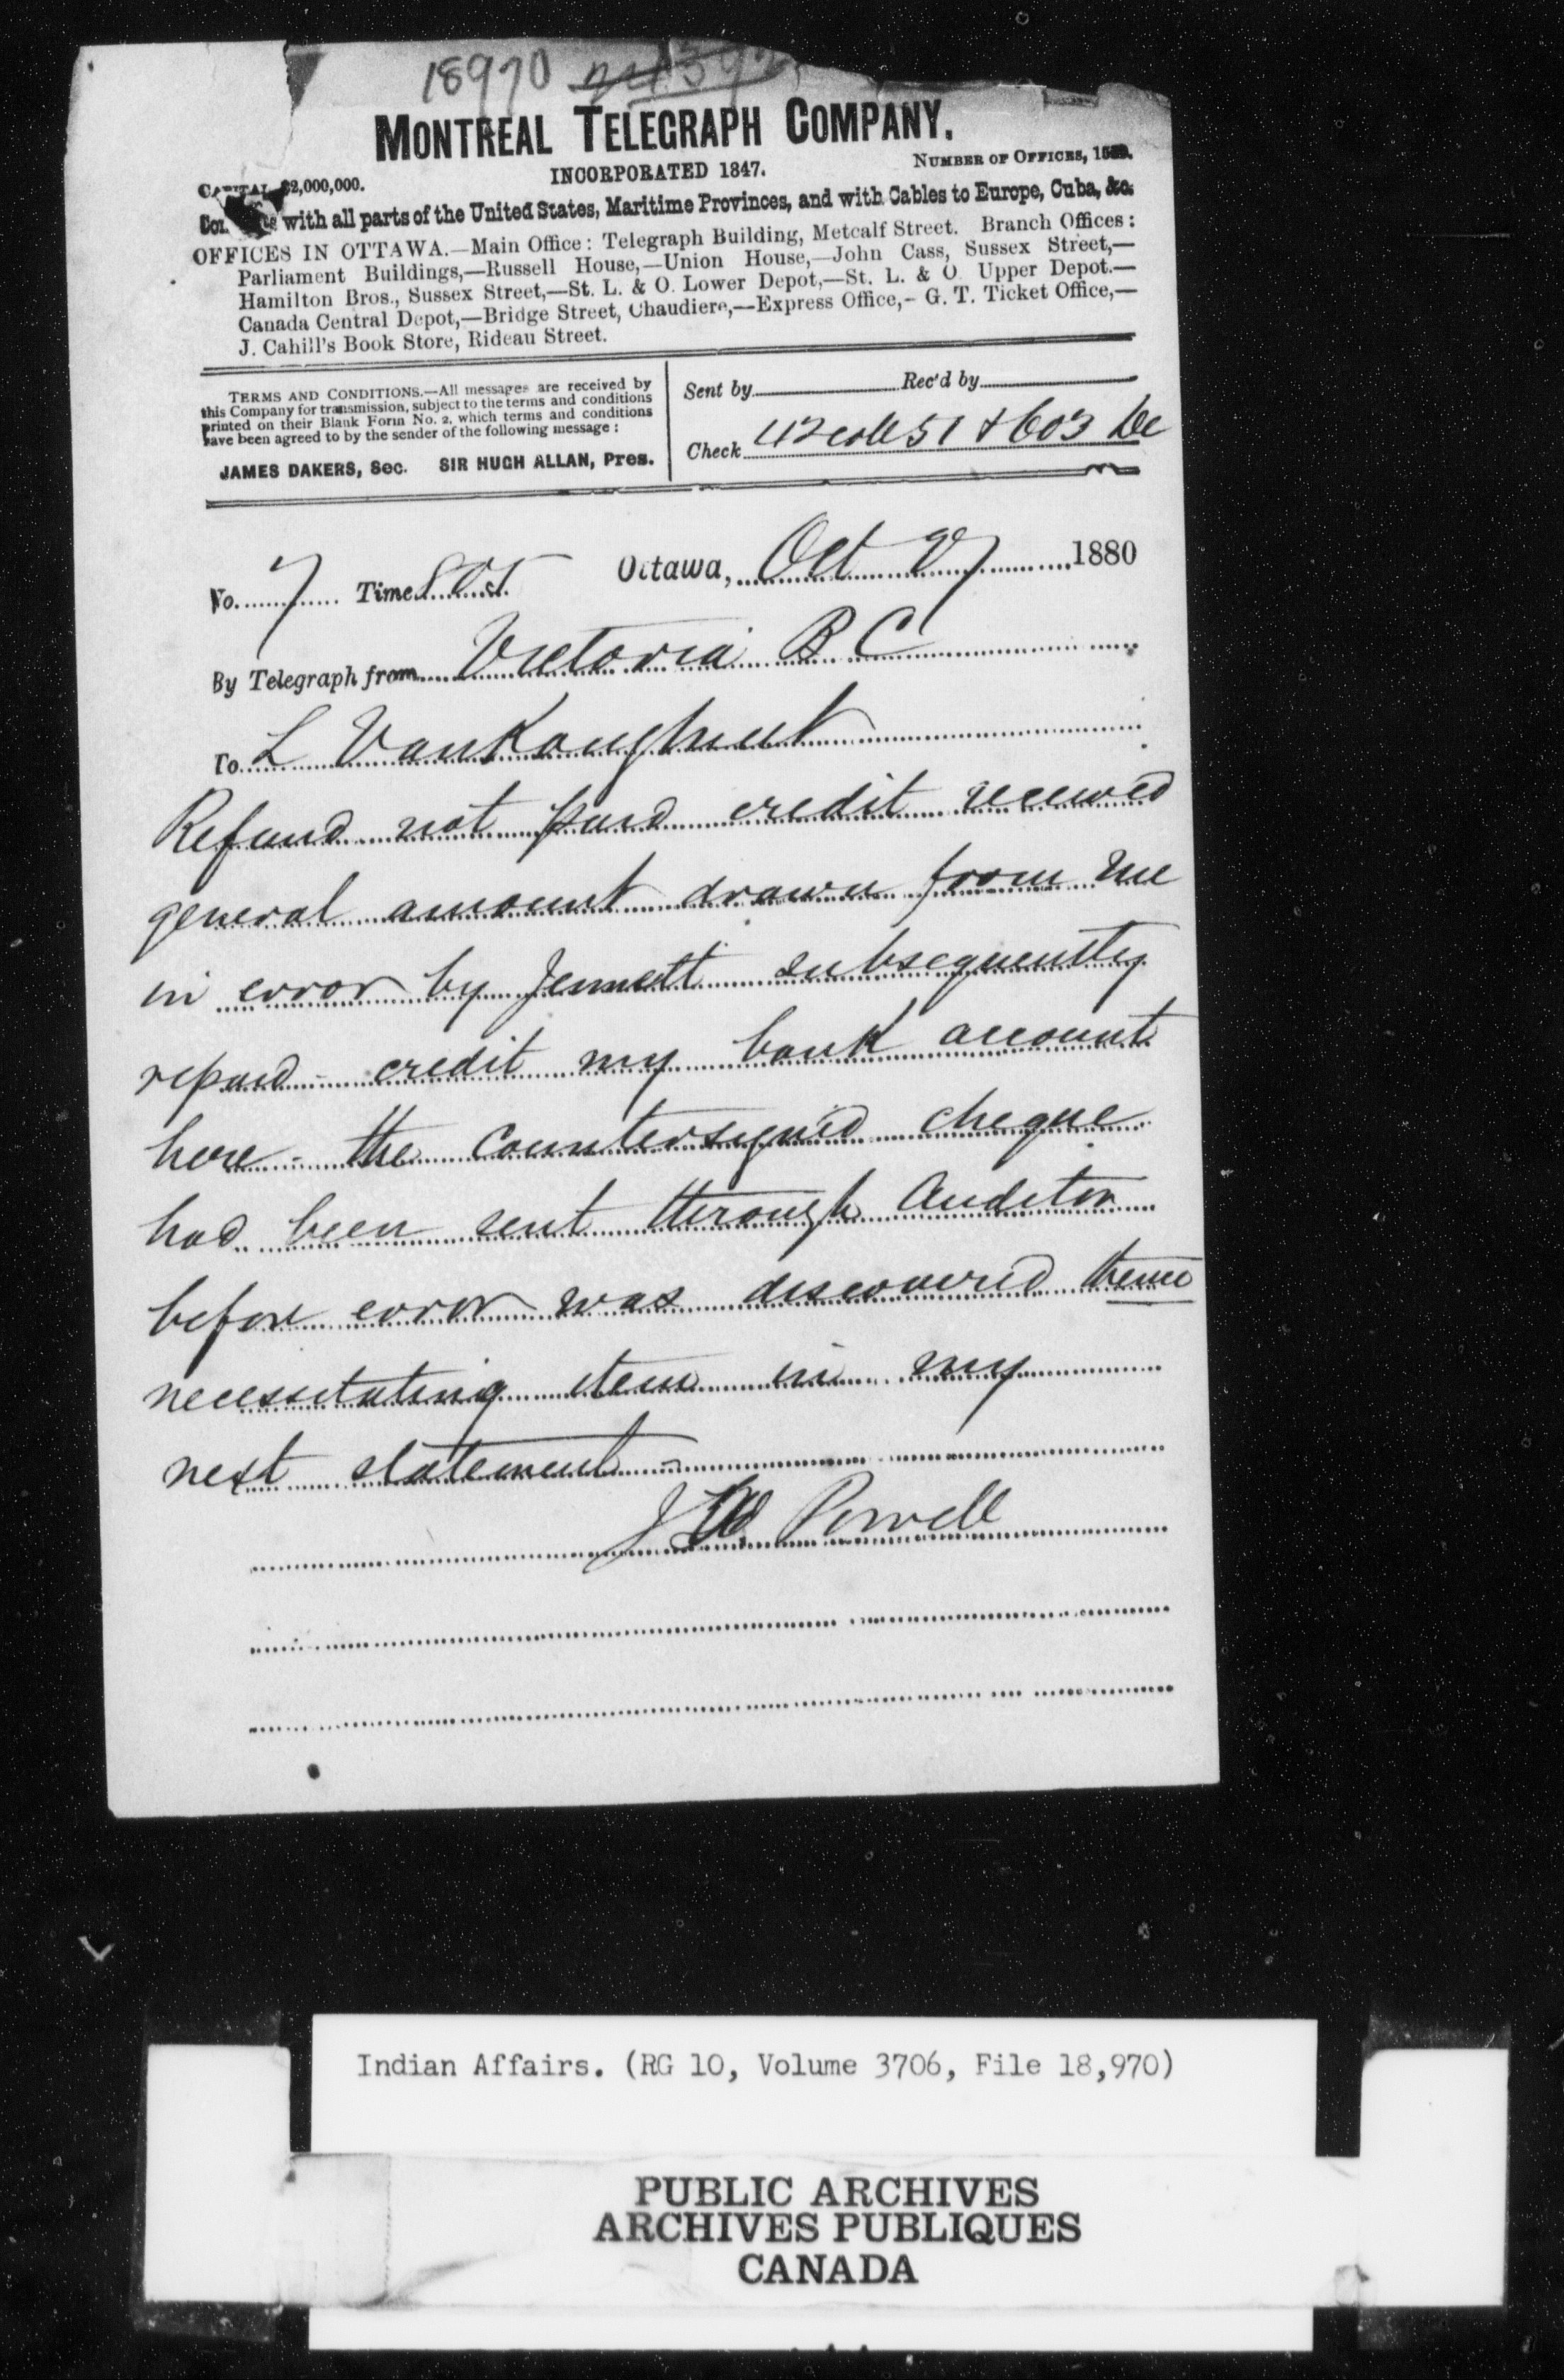 18970
MONTREAL TELEGRAPH COMPANY.
INCORPORATED 1847.
CAPITAL $2,000,000.
NUMBER OF OFFICES,
with all parts of the United States, Maritime Provinces, and with Cables to Europe, Cuba, &c.
OFFICES IN OTTAWA.—Main Office: Telegraph Building, Metcalf Street. Branch Offices:
Parliament Buildings,—Russell House,—Union House,—John Cass, Sussex Street,—
Hamilton Bros., Sussex Street,—St. L. & O. Lower Depot,—St. L. & O. Upper Depot.—
Canada Central Depot,—Bridge Street, Chaudiere,—Express Office,- G. T. Ticket Office,—
J. Cahill's Book Store, Rideau Street.
TERMS AND CONDITIONS.—All messages are received by
this Company for transmission, subject to the terms and conditions
printed on their Blank Form No. 2, which terms and conditions
have been agreed to by the sender of the following message:
JAMES DAKERS, Sec. SIR HUGH ALLAN, Pres.
Sent by Rec'd by
Check 42 cole 51 & 603 De
No. 7 Time 805 Ottawa, Oct 27 1880
By Telegraph from Victoria B C
To L VanKoughnet
Refund not paid credit received
general amount drawn from me
in error by Jemmett subsequently
repaid - credit my bank account
here - the Countersigned cheque
had been sent through Auditor
before error was discovered thence
necessitating item in my
next statement -
J W Powell
Indian Affairs. (RG 10, Volume 3706, File 18,970)
PUBLIC ARCHIVES
ARCHIVES PUBLIQUES
CANADA